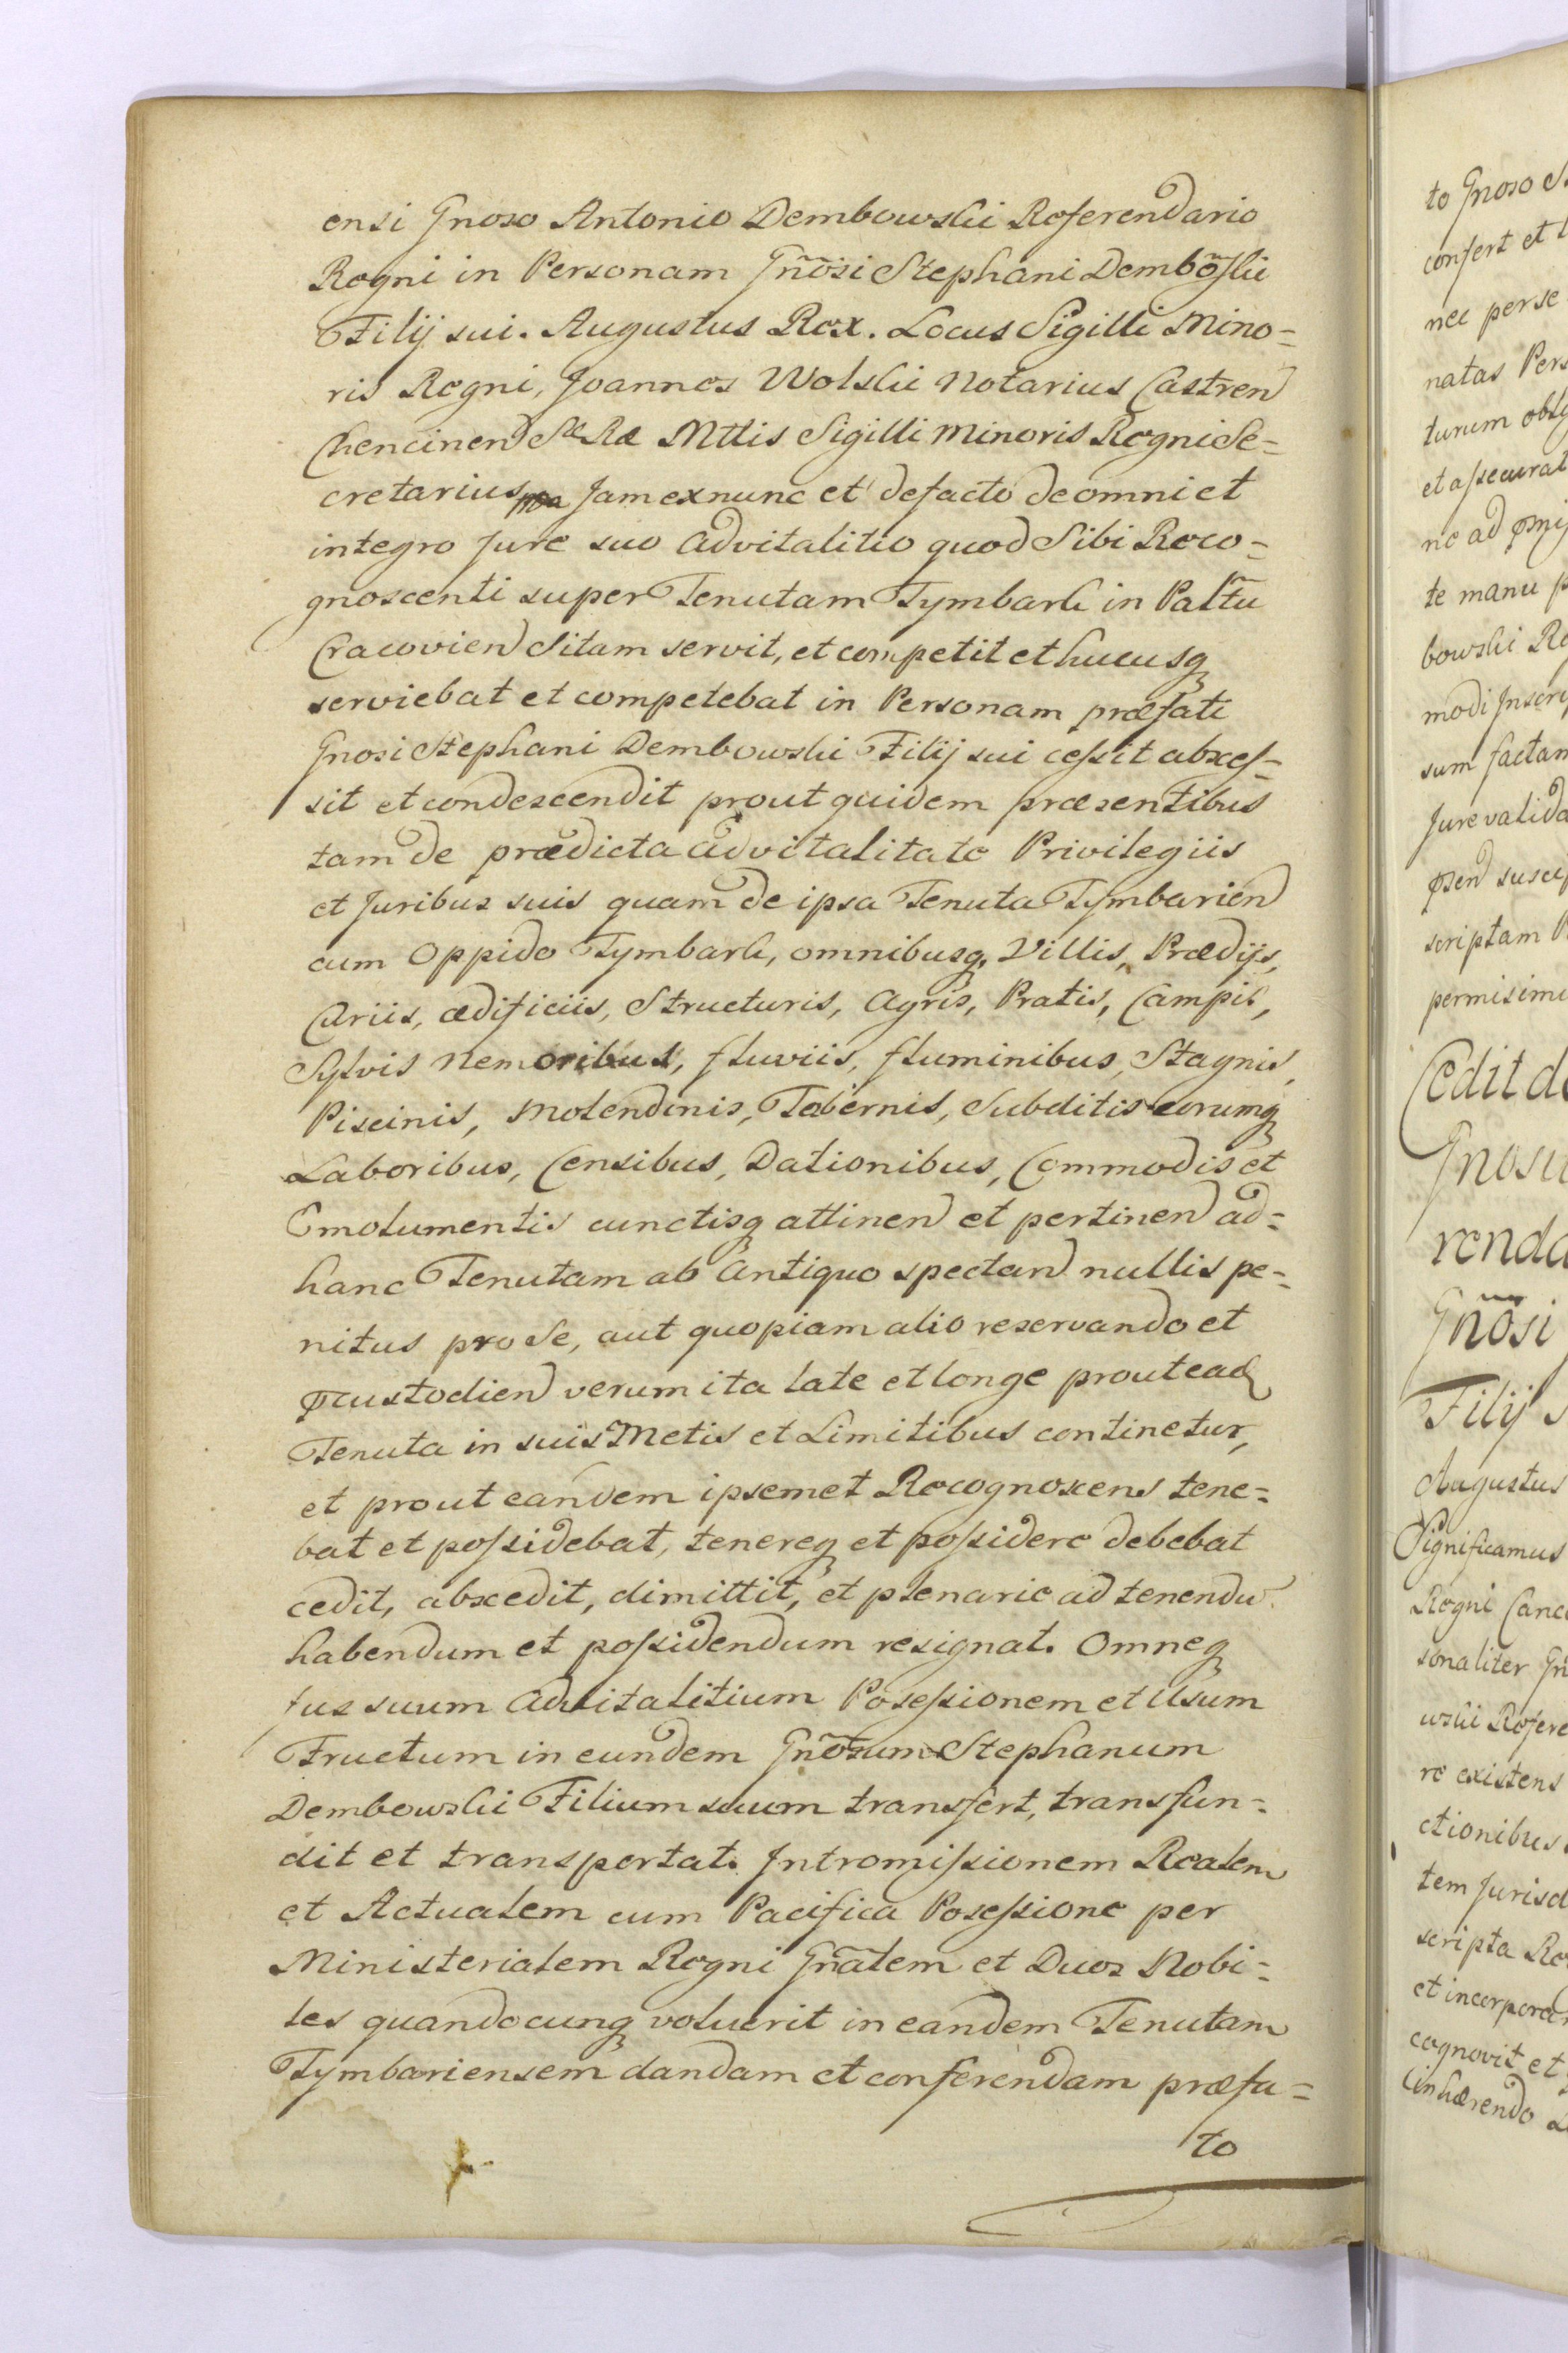 ensi Gnoso Antonio Dembowski Referendario
Regni in Personam Gñõsi Stephani Dembõski
Filij sui. Augustus Rex. Locus Sigilli Mino=
ris Regni, Joannes Wolski Notarius Castren
Chencinen SæRæ Mttis Sigilli Minoris Regni Se=
cretarius mpa Jam ex nunc et de facto de omni et
integro Jure suo Advitalitio quod Sibi Reco=
gnoscenti super Tenutam Tymbark in Paltũ
Cracovien Sitam servit, et competit et hucusq
serviebat et competebat in Personam præfati
Gnosi Stephani Dembowski Filij sui cessit absces=
sit et condescendit prout quidem præsentibus
tam de prædicta advitalitate Privilegiis
et Juribus suis quam de ipsa Tenuta Tymbarien
cum Oppido Tymbark, omnibusq. Villis, Prædijs,
Curiis, ædificiis, Structuris, Agris, Pratis, Campis,
Sylvis Nemoribus, fluviis, fluminibus, Stagnis,
Piscinis, Molendinis, Tabernis, Subditis eorumq
Laboribus, Censibus, Dationibus, Commodis et
Emolumentis cunctisq attinen et pertinen ad=
hanc Tenutam ab Antiquo spectan nullis pe=
nitus pro Se, aut quopiam alio reservando et
custodien verum ita late et longe prout ead
Tenuta in suis Metis et Limitibus continetur,
et prout eandem ipsemet Recognoscens tene=
bat et possidebat, tenereq et possidere debebat
cedit, abscedit, dimittit, et plenarie ad tenendu
habendum et possidendum resignat. Omneq
jus suum Advitalitium Posessionem et Usum
Fructum in eundem Gnõsum Stephanum
Dembowski Filium suum transfert, transfun=
dit et transportat. Intromissionem Realem
et Actualem cum Pacifica Posessione per
Ministerialem Regni Gñalem et Duos Nobi=
les quandocunq voluerit in eandem Tenutam
Tymbariensem dandam et conferendam præfa=
to
to Gnoso S
confert et
nec per se
natas Pers
turum
et assecurat
te manu
bowski Re
modi Inscri
sum factam
Jure valido
suscep
scriptam
permisimu
Cedit de
Gnosu
renda
Gñõsi
Filij s
Augustus
Significamus
Regni Canc
sonaliter Gñ
wski Refere
re existens
ctionibus
tem Jurisd
scripta Re
et incorpora
cognovit et
inhærendo